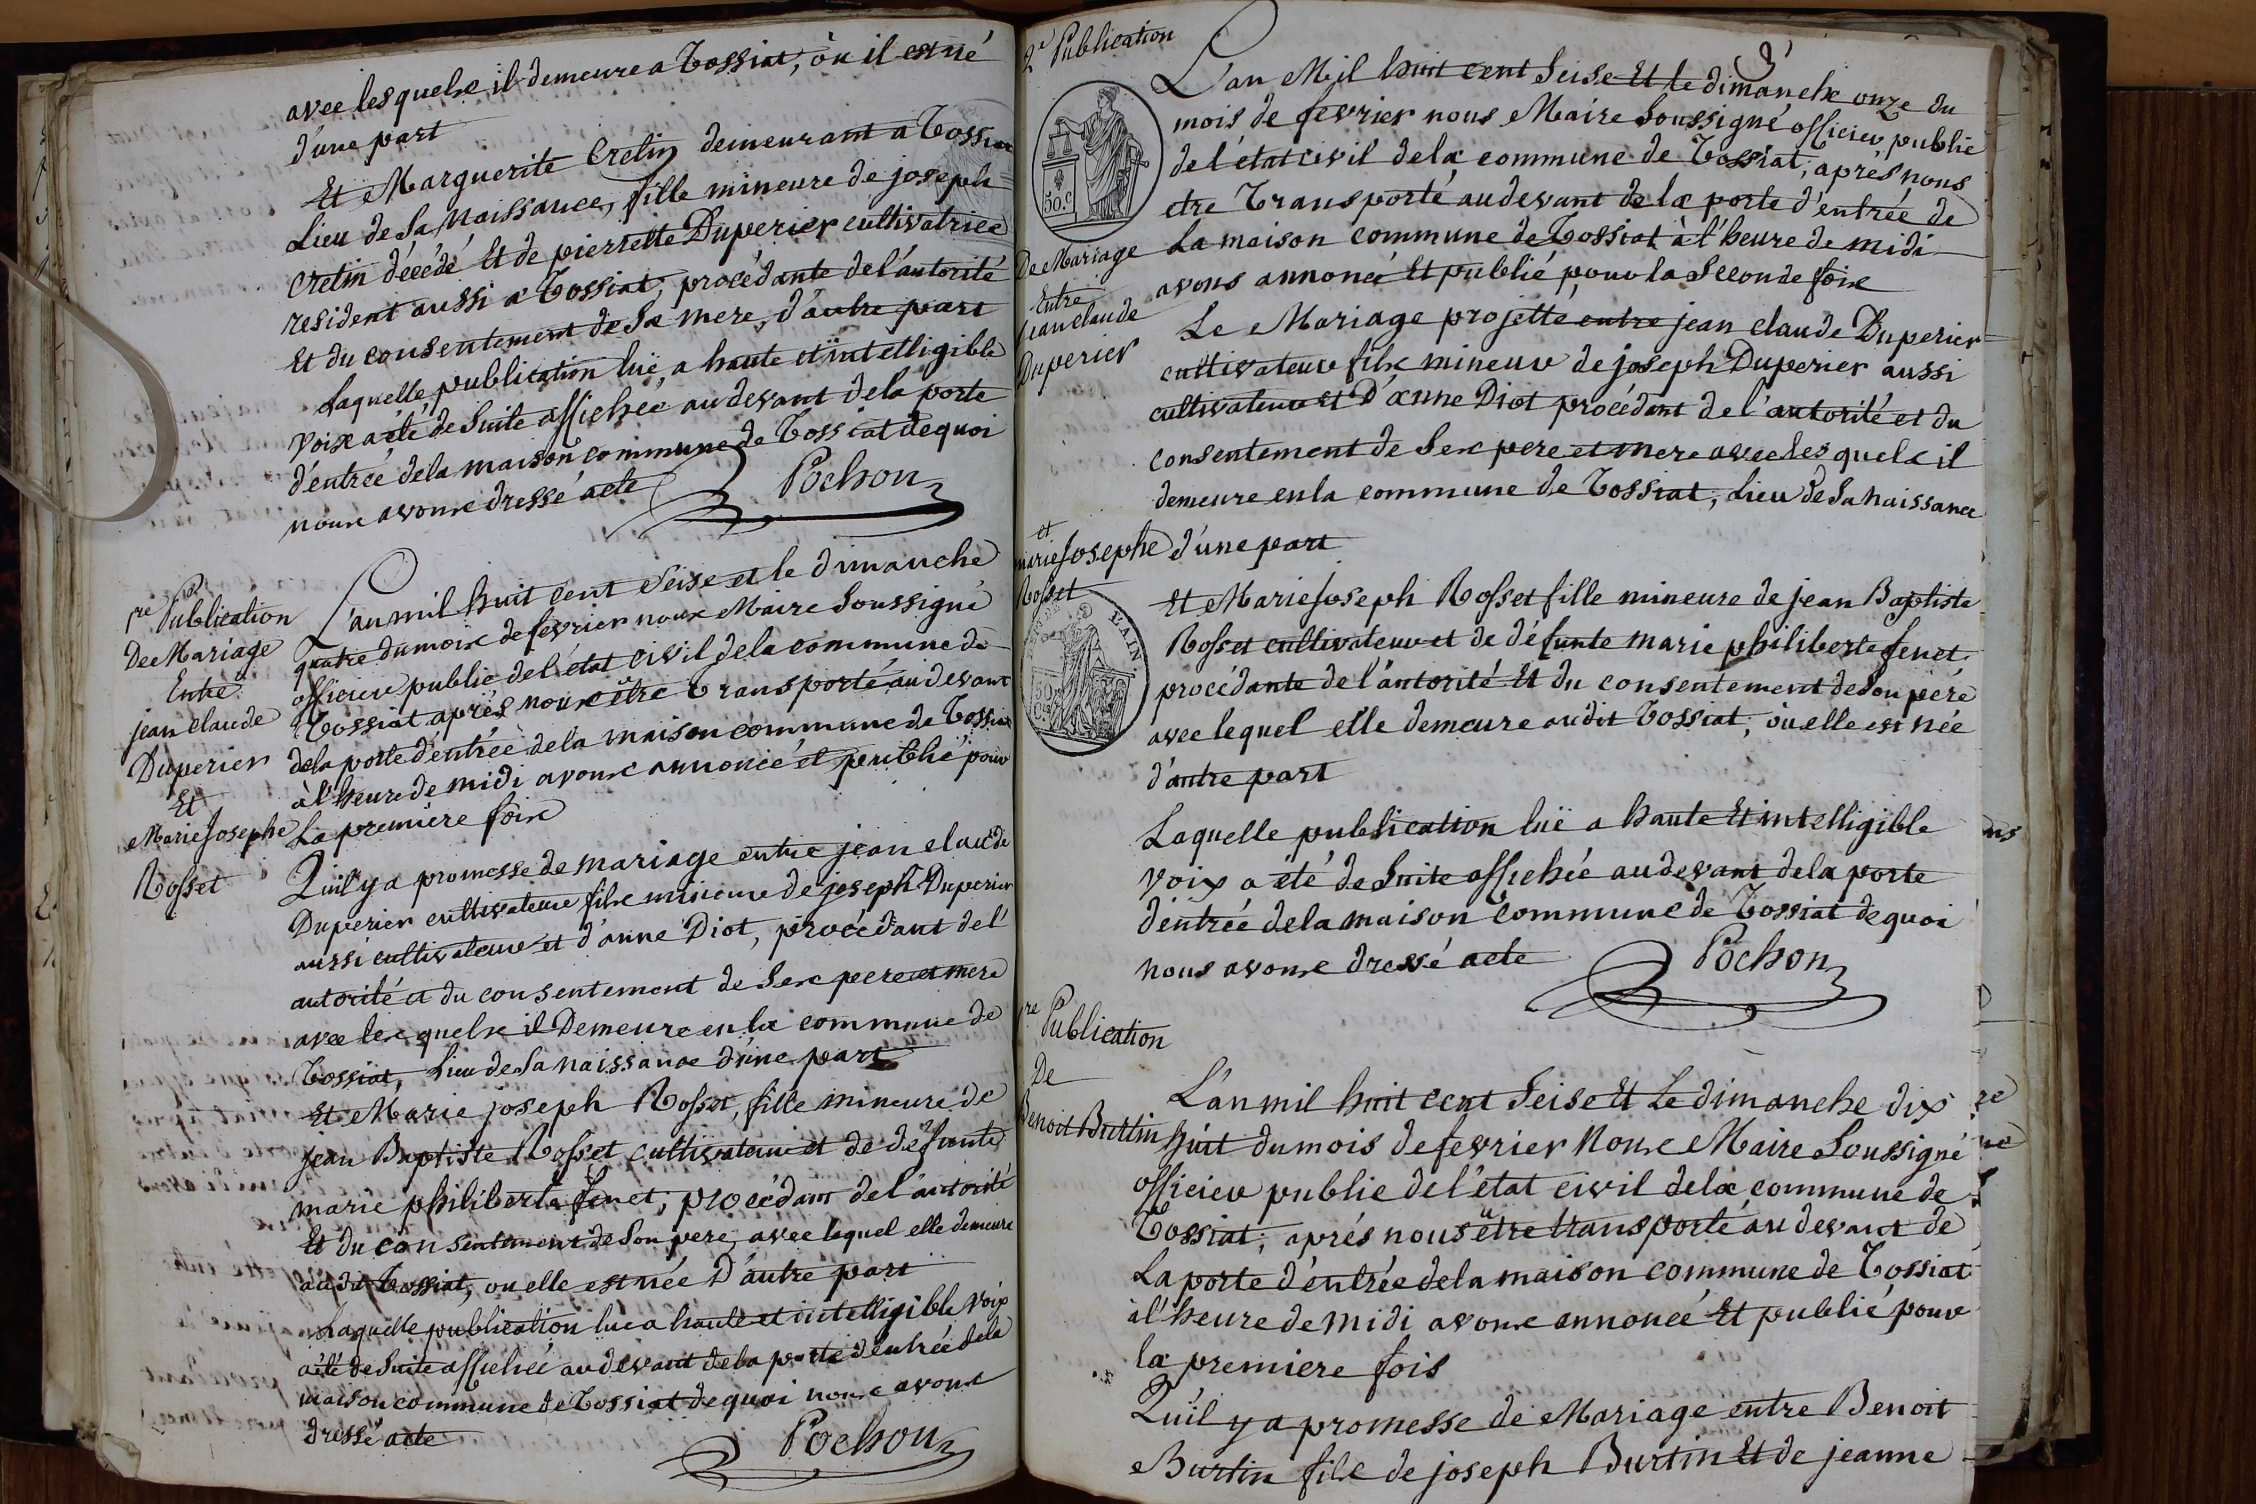 avec lesquels il demeure a Tossiat, ou il est né
d'une part
Et Marguerite Cretin demeurant a Tossiat
Lieu de Sa Naissance, fille mineure de joseph
Cretin décédé Et de pierrette Duperier cultivatrice
resident aussi a Tossiat, procédante de l'autorité
Et du consentement de Sa mere, d'autre part
Laquelle publication luë a haute et intelligible
voix a été de Suite affichée au devant de la porte
d'entrée de la maison commune de Tossiat de quoi
nous avons dressé acte
Pochon
1re Publication
De Mariage
Entre
jean claude
Duperier
Et
Marie Josephe
Rosset
L'an mil huit cent Seise et le dimanche
quatre du mois de fevrier nous Maire Soussigné
officier public de l'état civil de la commune de
Tossiat après nous être Transporté au devant
de la porte d'entrée de la maison commune de Tossiat
à l'heure de midi avons annoncé et publié pour
La premiere fois
Quil y a promesse de mariage entre jean claude
Duperier cultivateur fils mineur de joseph Duperier
aussi cultivateur et d'anne Diot, procédant de l'
autorité et du consentement de Ses pere et mere
avec les quels il Demeure en la commune de
Tossiat, Lieu de Sa naissance d'une part
Et Marie joseph Rosset, fille mineure de
jean Baptiste Rosset cultivateur et de défunte
marie philiberte fenet, procédant de l'autorité
Et du consentement de Son pere, avec lequel elle demeure
audit Tossiat, ou elle est née D'autre part
Laquelle publication lue a haute et intelligible voix
a été de Suite affichée au devant de la porte d'entrée de la
maison commune de Tossiat de quoi nous avons
dressé acte
Pochon
2e Publication
De Mariage
Entre
jean claude
Duperier
et
marie Josephe
Rosset
50.c
L'AIN
L'an Mil huit cent Seise Et le dimanche onze du
mois de fevrier nous Maire Soussigné officier public
de l'état civil de la commune de Tossiat, après nous
etre Transporté au devant de la porte d'entrée de
La maison commune de Tossiat à l'heure de midi
avons annoncé Et publié pour la Seconde fois
Le Mariage projetté entre jean claude Duperier
cultivateur fils mineur de joseph Duperier aussi
cultivateur et D'anne Diot procédant de l'autorité et du
consentement de Ses pere et mere avec les quels il
demeure en la commune de Tossiat, Lieu de Sa naissance
d'une part
Et Marie Joseph Rosset fille mineure de jean Baptiste
Rosset cultivateur et de défunte marie philiberte fenet
procédante de l'autorité Et du consentement de Son pére
avec lequel elle demeure audit Tossiat, ou elle est née
d'autre part
Laquelle publication luë a haute Et intelligible
voix a été de Suite affichée au devant de la porte
d'entrée de la maison Commune de Tossiat de quoi
nous avons dressé acte
Pochon
1re Publication
De
Benoit Burtin
L'an mil huit cent Seise Et Le dimanche dix
huit du mois de fevrier Nous Maire Soussigné
officier public de l'état civil de la commune de
Tossiat, aprés nous être transporté au devant de
La porte d'entrée de la maison commune de Tossiat
à l'heure de midi avons annoncé Et publié pour
la premiere fois
Qu'il y a promesse de Mariage entre Benoit
Burtin fils de joseph Burtin Et de jeanne